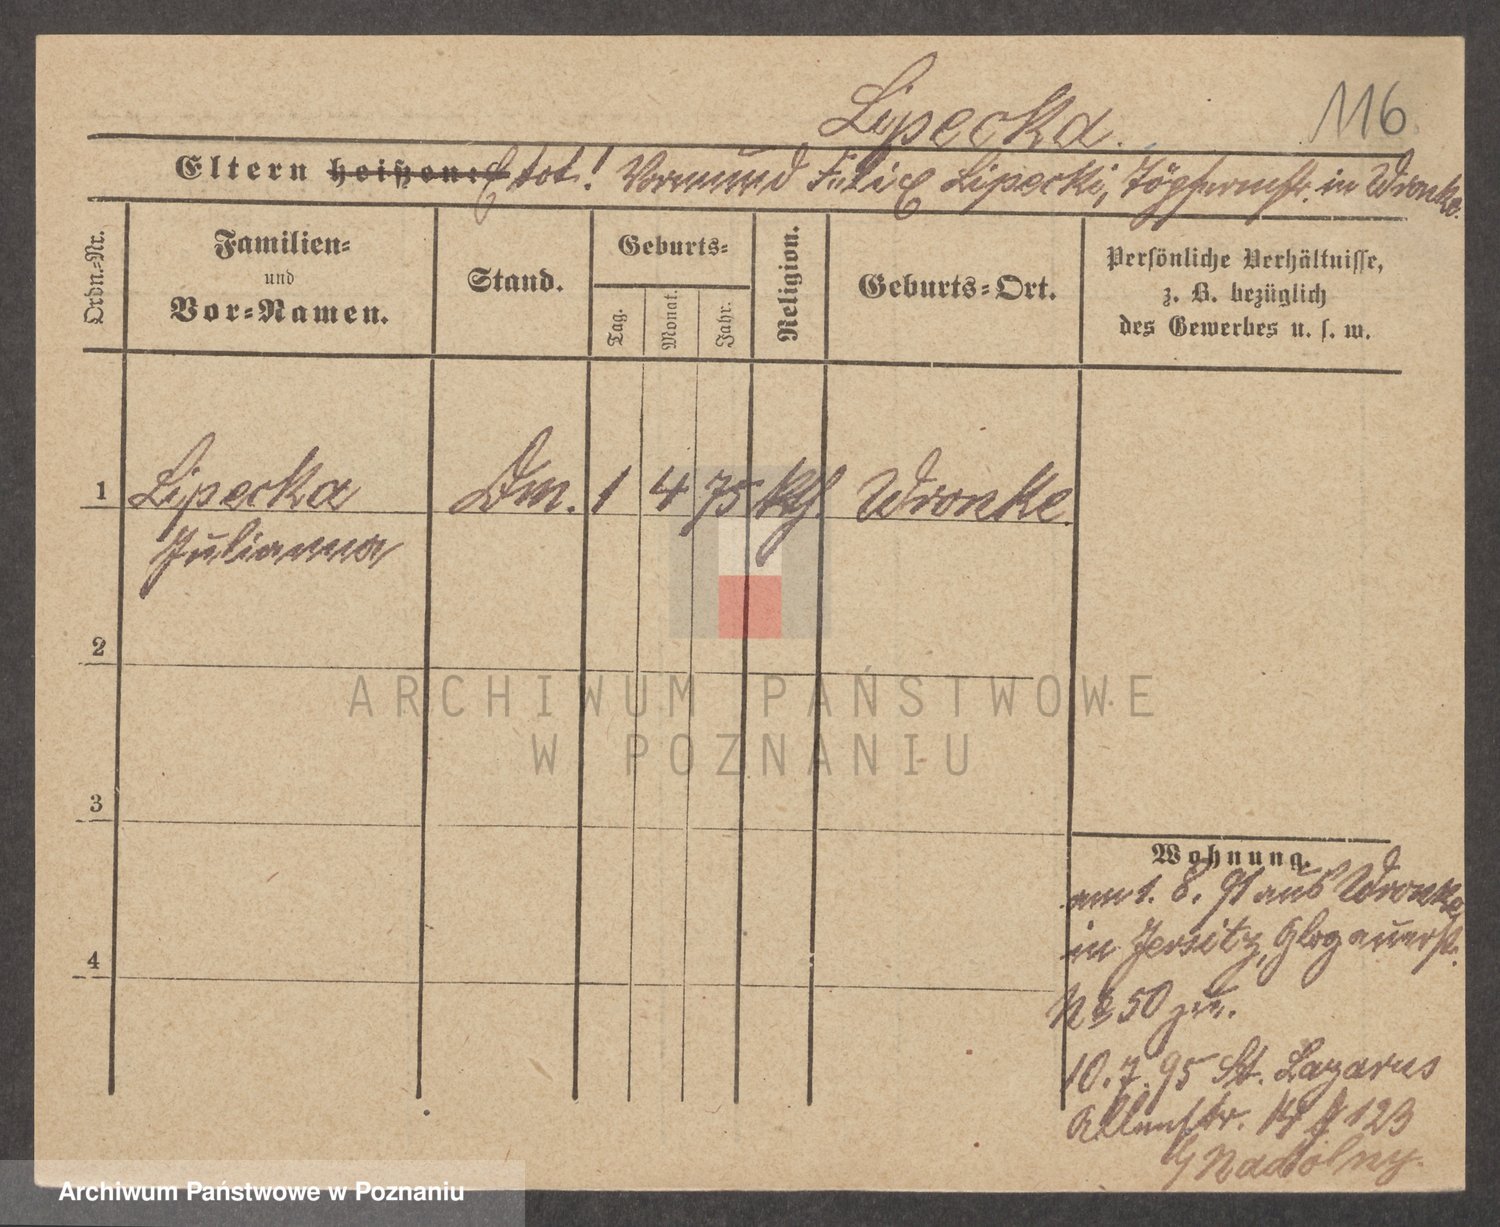 Lipecka.
116
Eltern heißen: tot! Vormund Felix Lipecki, Töpfermstr. in Wronke.
Ordn.-Nr.
Familien-
und
Vor-Namen.
Stand.
Geburts-
Tag.
Monat.
Jahr.
Religion.
Geburts-Ort.
Persönliche Verhältnisse,
z. B. bezüglich
des Gewerbes u. s. w.
1 Lipecka Dm. 1 4 75 kth. Wronke.
Julianna
2
3
4
Wohnung.
am 1. 8. 91 aus Wronke
in Jersitz, Glogauerst.
No 50 zu.
10. 7. 95 St. Lazarus
123
Nadolny.
ARCHIWUM PAŃSTWOWE
W POZNANIU
Archiwum Państwowe w Poznaniu